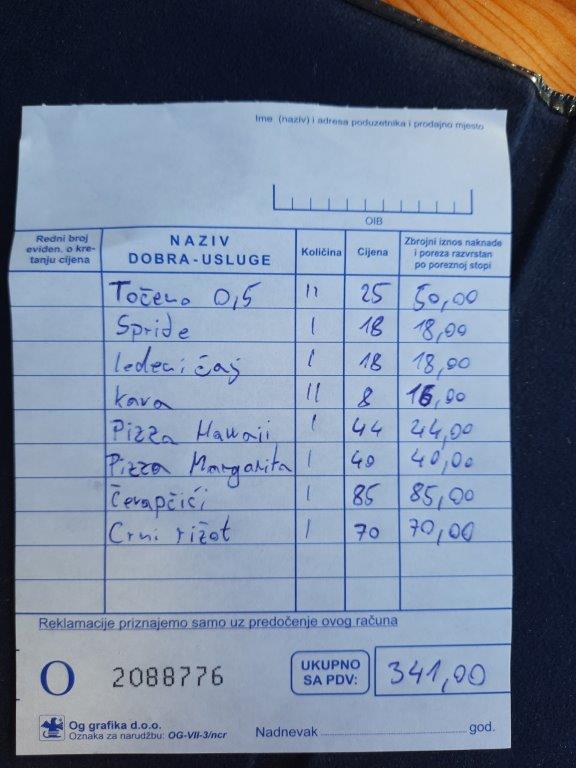 Ime (naziv) i adresa poduzetnika i prodajno mjesto
OIB
Redni broj
eviden. o kre-
tanju cijena
NAZIV
DOBRA-USLUGE
Količina
Cijena
Zbrojni iznos naknade
i poreza razvrstan
po poreznoj stopi
Točeno 0,5 11 25 50,00
Spride 1 18 18,00
ledeni čaj 1 18 18,00
kava 11 8 16,00
Pizza Hawaji 1 44 44,00
Pizza Margarita 1 40 40,00
Čevapčići 1 85 85,00
Crni rižot 1 70 70,00
Reklamacije priznajemo samo uz predočenje ovog računa
O 2088776
UKUPNO
SA PDV:
341,00
Og grafika d.o.o.
Oznaka za narudžbu: OG-VII-3/ncr
Nadnevak god.